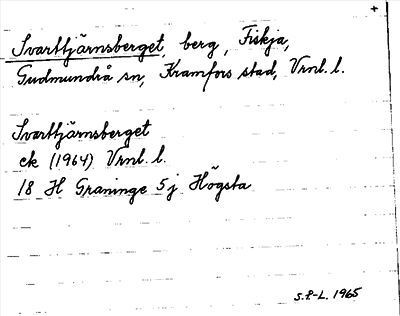 +
Svarttjärnsberget, berg, Fiskja,
Gudmundrå sn, Kramfors stad, Vrnl. l.
Svarttjärnsberget
ek (1964) Vrnl. l.
18 H Graninge 5j Högsta
S.P-L. 1965